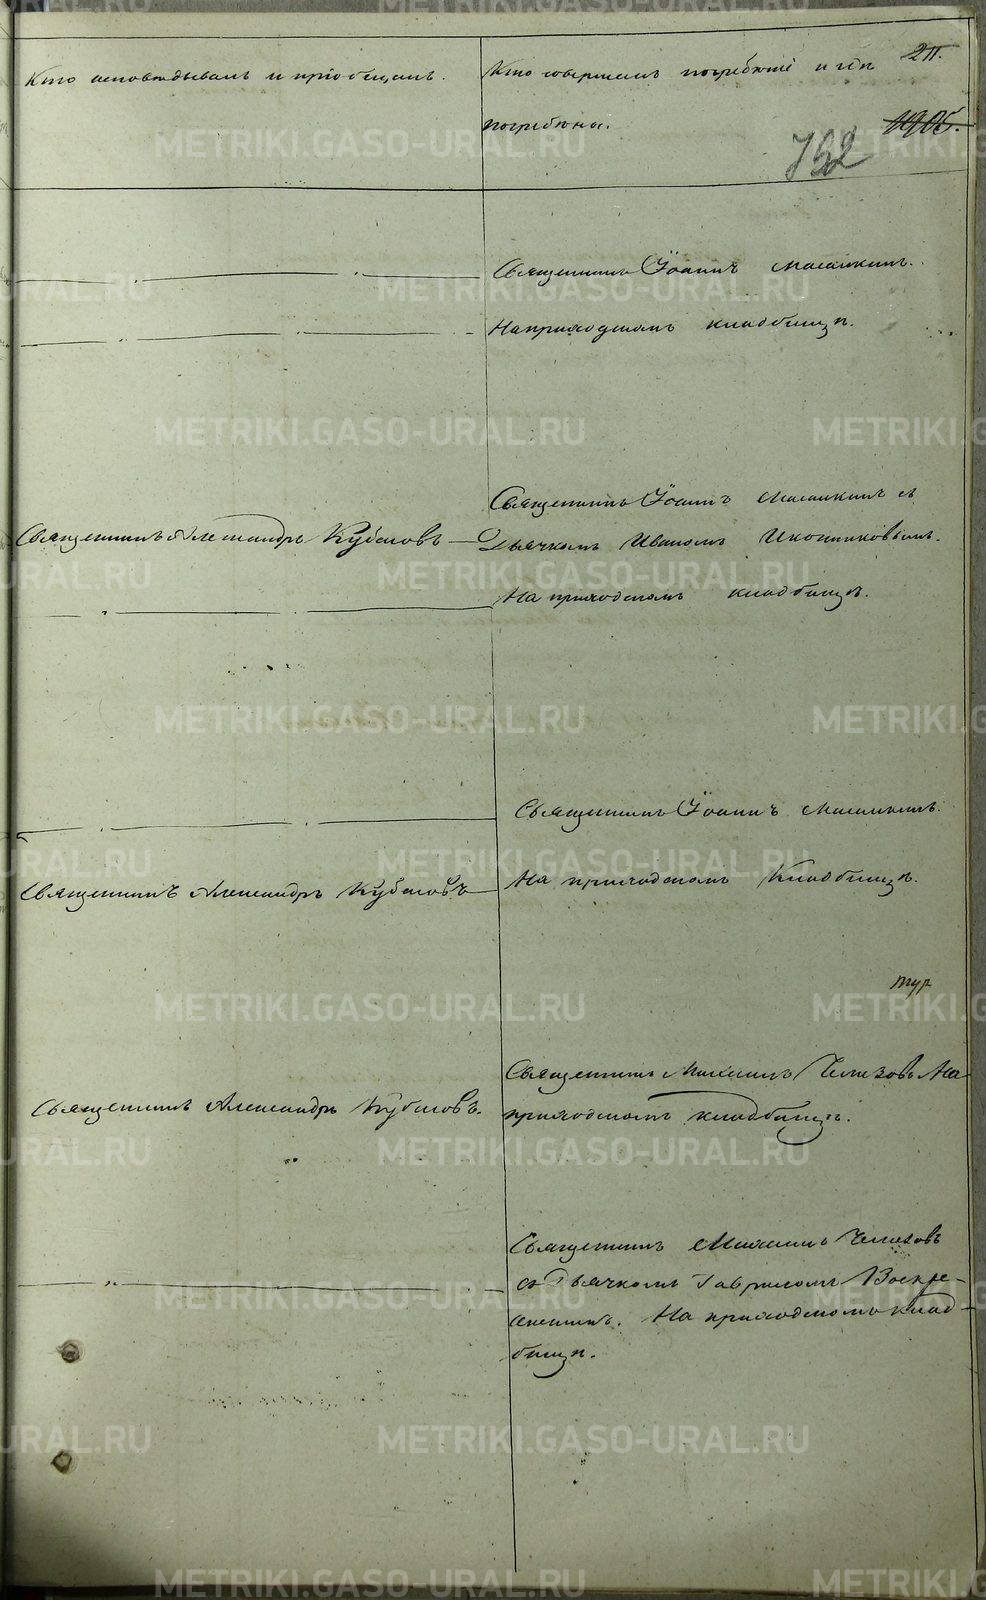 Кто исповѣдывалъ и пріобщалъ.
Кто совершалъ погребеніе и гдѣ
погребены.
211.
1905.
792
Священникъ Іоаннъ
На приходскомъ кладбищѣ.
Священникъ Іоаннъ съ
Священникъ Александръ Кубасовъ
Дьячкомъ Иваномъ Иконниковымъ.
На приходскомъ кладбищѣ.
Священникъ Іоаннъ
Священникъ Александръ Кубасовъ
На приходскомъ Кладбищѣ.
Священникъ Михаилъ На
Священникъ Александръ Кубасовъ.
приходскомъ кладбищѣ.
Священникъ Михаилъ
съ Дьячкомъ Гавриломъ Воскре-
сенскимъ. На приходскомъ клад-
бищѣ.
METRIKI.GASO-URAL.RU